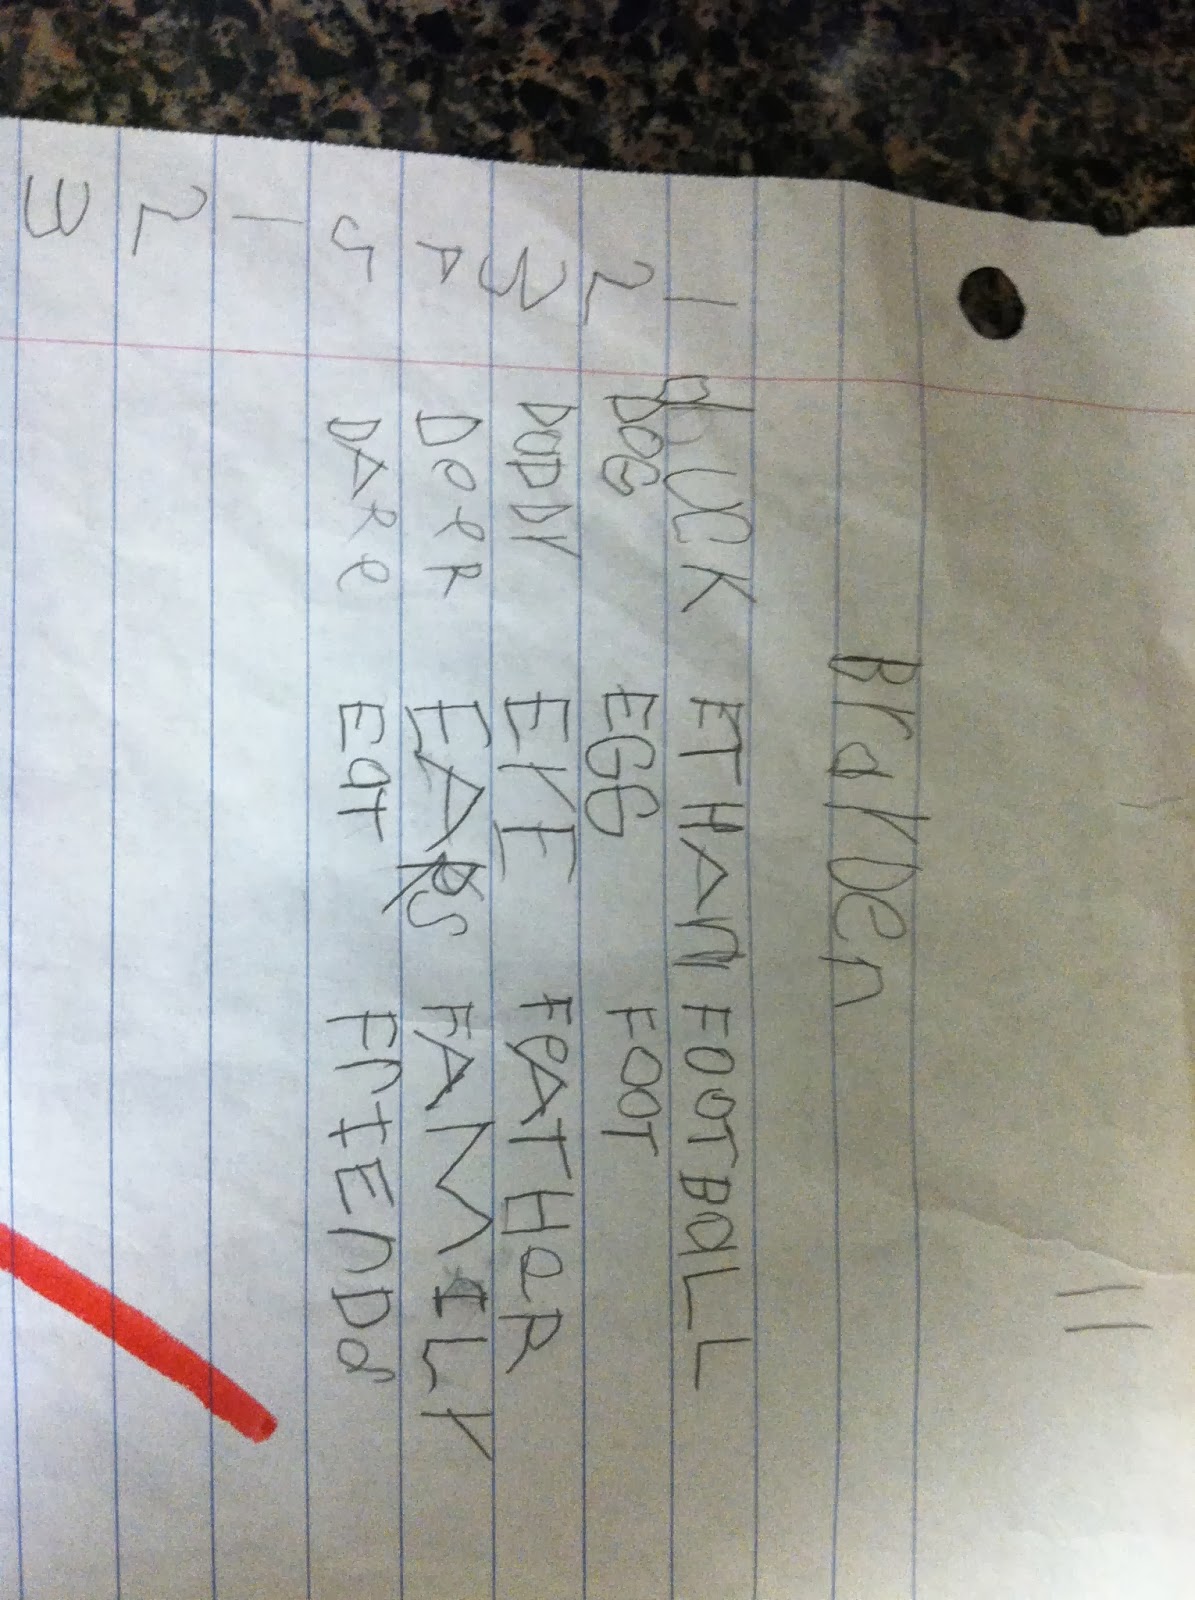 11
Brayden
1 duck ETHAN FOOTBaLL
2 DOG EGG FOOT
3 DaDDY EYE FeATHeR
4 DeeR EARS FAMILY
5 DARe EaT FrIEnDs
1
2
3